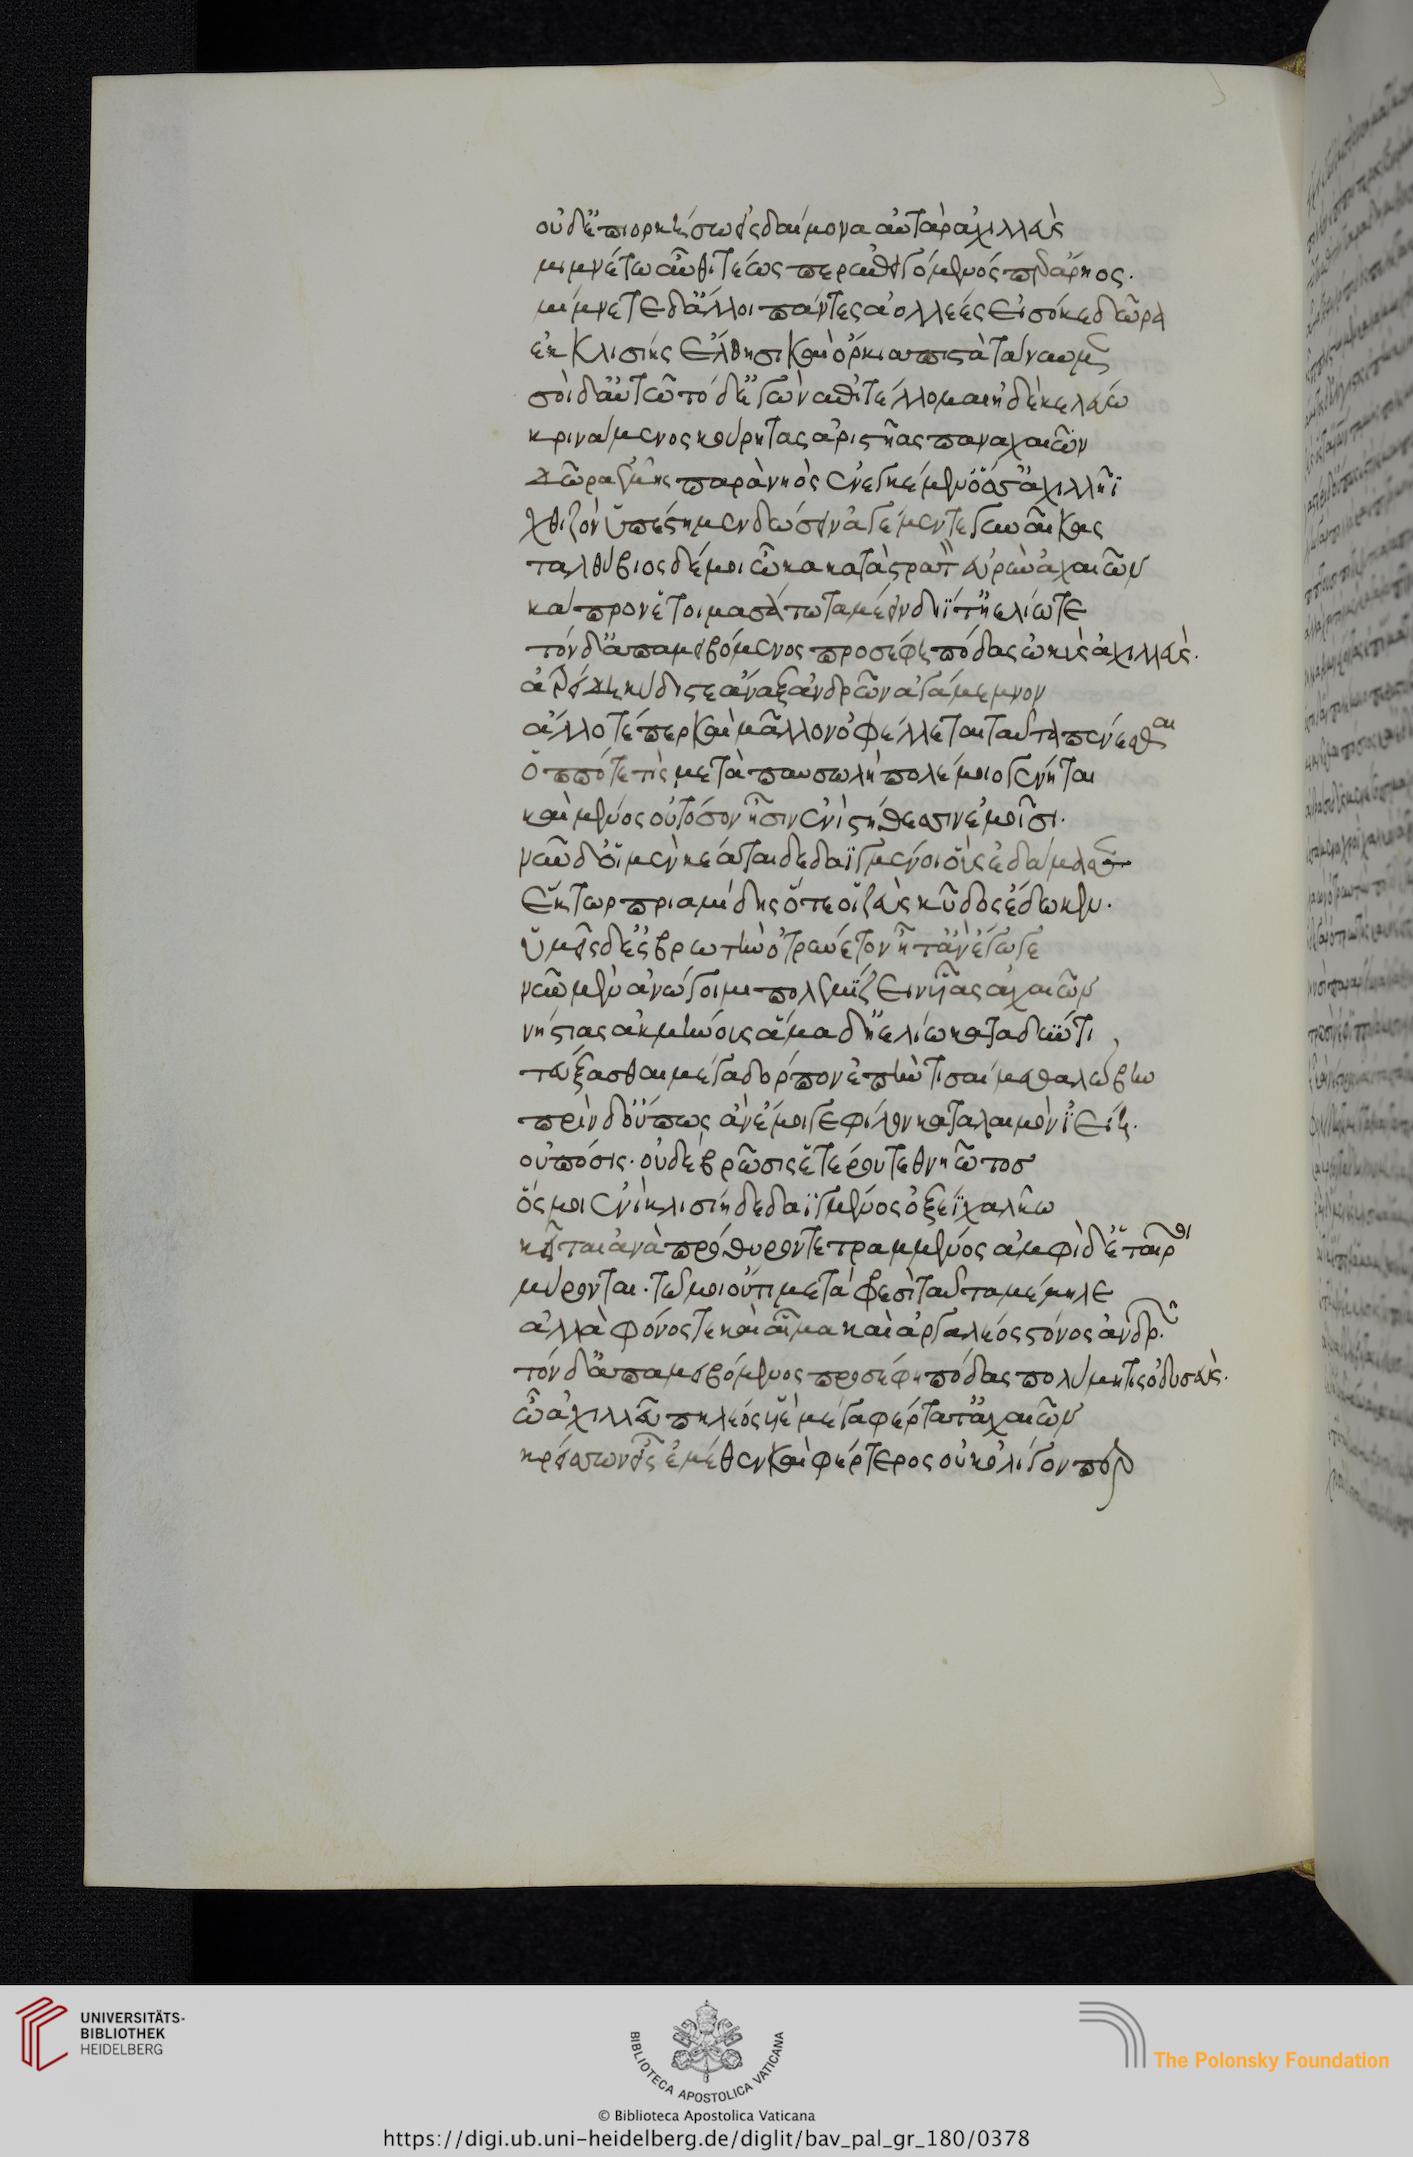 οὐδ' ἐπιορκήσω πρὸς δαίμονα αὐτὰρ ἀχιλλεὺς
μιμνέτω αὖθι τέως περ ἐπειγόμενός περ ἄρηος.
μίμνετε δ' ἄλλοι πάντες ἀολλέες εἰσόκε δῶρα
ἐκ κλισίης ἔλθησι καὶ ὅρκια πιστὰ τάμωμεν
σοὶ δ' αὐτῶ τόδ' ἐγὼν ἐπιτέλλομαι ἠδὲ κελεύω
κρινάμενος κούρητας ἀριστῆας παναχαιῶν
δῶρα ἐμῆς παρὰ νηὸς ἐνεγκέμεν ὅσσ' ἀχιλλῆϊ
χθιζὸν ὑπέστημεν δώσειν ἀγέμεν τε γυναῖκας
ταλθύβιος δέ μοι ὦκα κατὰ στρατὸν εὐρὺν ἀχαιῶν
κάπρον ἑτοιμασάτω ταμέειν διΐ τ' ἠελίω τε
τὸν δ' ἀπαμειβόμενος προσέφη πόδας ὠκὺς ἀχιλλεύς.
ἀτρείδη κύδιστε ἄναξ ἀνδρῶν ἀγάμεμνον
ἄλλοτέ περ καὶ μᾶλλον ὀφέλλετε ταῦτα πένεσθαι
ὁππότε τις μεταπαυσωλὴ πολέμοιο γένηται
καὶ μένος οὐ τόσον ἦσιν ἐνὶ στήθεσσιν ἐμοῖσι.
νῦν δ' οἱ μὲν κέαται δεδαϊγμένοι οὓς ἐδάμασσεν
ἕκτωρ πριαμίδης ὅτε οἱ ζεὺς κῦδος ἔδωκεν.
ὑμεῖς δ' ἐς βρωτὺν ὀτρύνετον ἦ τ' ἂν ἔγωγε
νῦν μὲν ἀνώγοιμι πολεμίζειν υἷας ἀχαιῶν
νήστιας ἀκμήνους ἅμα δ' ἠελίω καταδύντι
τεύξασθαι μέγα δόρπον ἐπὴν τισαίμεθα λώβην
πρὶν δ' οὔπως ἂν ἔμοιγε φίλον κατὰ λαιμὸν ἰείη.
οὐ πόσις. οὐδὲ βρῶσις ἑτέρου τεθνηῶτος
ὅς μοι ἐνὶ κλισίη δεδαϊγμένος ὀξέϊ χαλκῶ
κεῖται ἀνὰ πρόθυρον τετραμμένος ἀμφὶ δ' ἑταῖροι
μύρονται. τό μοι οὔτι μετὰ φρεσὶ ταῦτα μέμηλε
ἀλλὰ φόνος τε καὶ αἷμα καὶ ἀργαλέος στόνος ἀνδρῶν.
τὸν δ' ἀπαμειβόμενος προσέφη πόδας πολύμητις ὀδυσεύς.
ὦ ἀχιλλεῦ πηλέος υἱὲ μέγα φέρτατ' ἀχαιῶν
κρείσσων εἷς ἐμέθεν καὶ φέρτερος οὐκ ὀλίγον περ
UNIVERSITÄTS-
BIBLIOTHEK
HEIDELBERG
BIBLIOTECA APOSTOLICA VATICANA
The Polonsky Foundation
© Biblioteca Apostolica Vaticana
https://digi.ub.uni-heidelberg.de/diglit/bav_pal_gr_180/0378